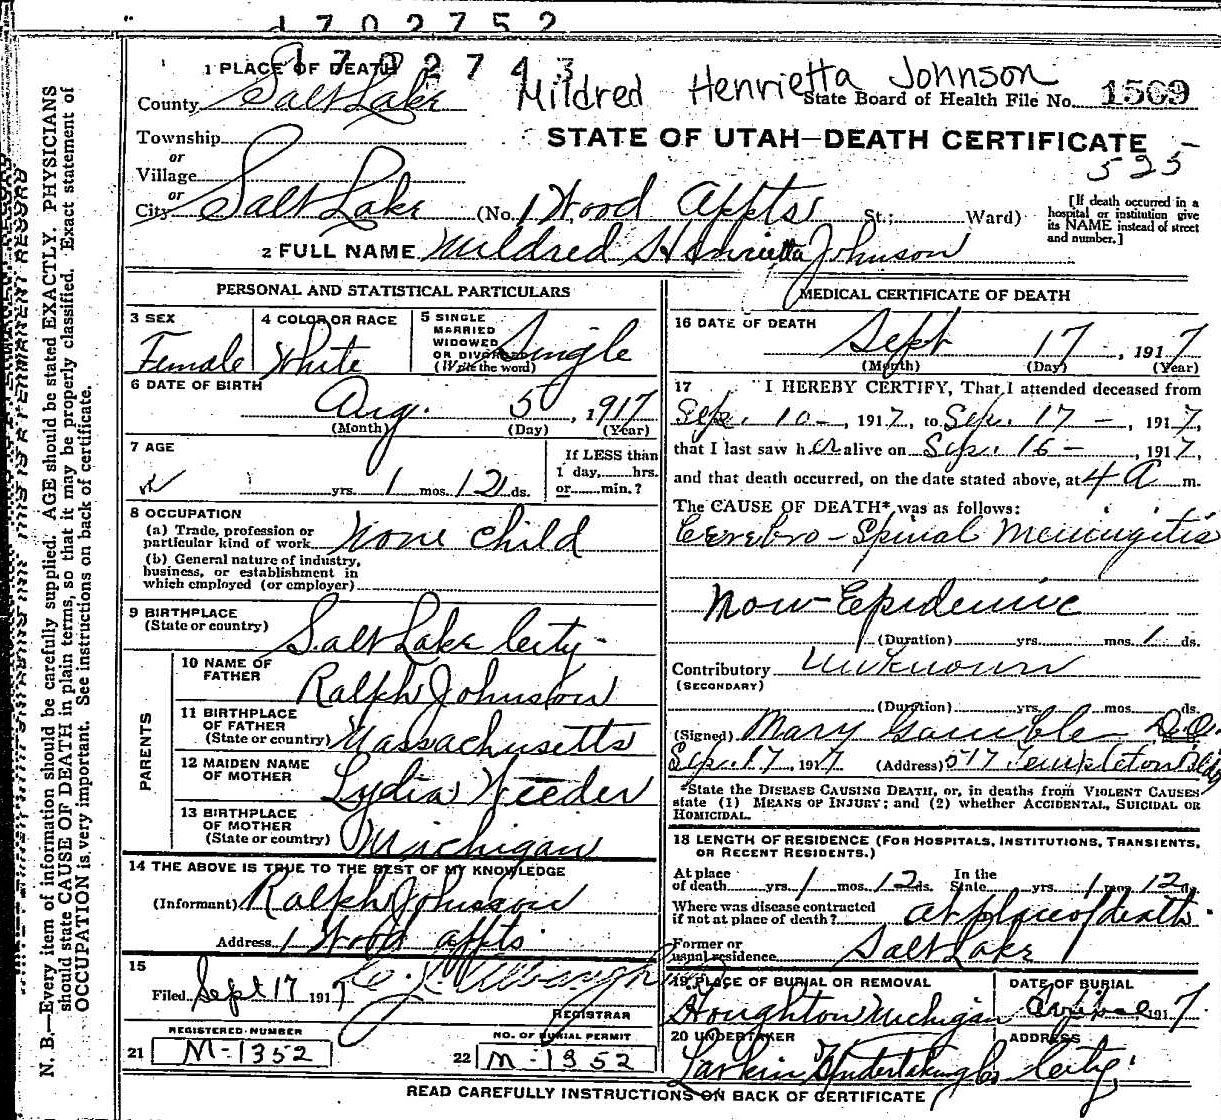 1702752
1702743
1 PLACE OF DEATH
Mildred Henrietta Johnson
County Salt Lake
State Board of Health File No. 1509
Township
STATE OF UTAH—DEATH CERTIFICATE
525
or
Village
or
City Salt Lake (No. 1 Wood Appts St.; Ward)
[If death occurred in a hospital or institution give its NAME instead of street and number.]
2 FULL NAME Mildred Henrietta Johnson
PERSONAL AND STATISTICAL PARTICULARS
3 SEX Female
4 COLOR OR RACE White
5 SINGLE MARRIED WIDOWED OR DIVORCED (Write the word) Single
6 DATE OF BIRTH
Aug. 5, 1917
(Month) (Day) (Year)
7 AGE
yrs. 1 mos. 12 ds.
If LESS than 1 day, hrs. or min.?
8 OCCUPATION
(a) Trade, profession or particular kind of work None Child
(b) General nature of industry, business, or establishment in which employed (or employer)
9 BIRTHPLACE
(State or country) Salt Lake City
PARENTS
10 NAME OF FATHER Ralph Johnson
11 BIRTHPLACE OF FATHER (State or country) Massachusetts
12 MAIDEN NAME OF MOTHER Lydia Weeder
13 BIRTHPLACE OF MOTHER (State or country) Michigan
14 THE ABOVE IS TRUE TO THE BEST OF MY KNOWLEDGE
(Informant) Ralph Johnson
Address 1 Wood appts
15
Filed Sept 17 1917
REGISTRAR
REGISTERED NUMBER
21 M-1352
NO. OF BURIAL PERMIT
22 M-1352
MEDICAL CERTIFICATE OF DEATH
16 DATE OF DEATH
Sept 17, 1917
(Month) (Day) (Year)
17 I HEREBY CERTIFY, That I attended deceased from
Sep. 10 -, 1917, to Sep. 17 -, 1917,
that I last saw her alive on Sep. 16 -, 1917,
and that death occurred, on the date stated above, at 4 A m.
The CAUSE OF DEATH* was as follows:
Cerebro-Spinal Meningitis
Non-Epidemic
(Duration) yrs. mos. 1 ds.
Contributory Unknown
(SECONDARY)
(Duration) yrs. mos. ds.
(Signed) Mary Gamble D.O.
Sep. 17, 1917 (Address) 517 Templeton Bldg
*State the DISEASE CAUSING DEATH, or, in deaths from VIOLENT CAUSES
state (1) MEANS OF INJURY; and (2) whether ACCIDENTAL, SUICIDAL OR
HOMICIDAL.
18 LENGTH OF RESIDENCE (FOR HOSPITALS, INSTITUTIONS, TRANSIENTS,
OR RECENT RESIDENTS.)
At place of death yrs. 1 mos. 12 ds. In the State yrs. 1 mos. 12 ds.
Where was disease contracted if not at place of death? at place of death.
Former or usual residence Salt Lake
19 PLACE OF BURIAL OR REMOVAL
Houghton Michigan
DATE OF BURIAL
1917
20 UNDERTAKER
Larkin Undertaking Co
ADDRESS
City.
READ CAREFULLY INSTRUCTIONS ON BACK OF CERTIFICATE
N. B.—Every item of information should be carefully supplied. AGE should be stated EXACTLY. PHYSICIANS
should state CAUSE OF DEATH in plain terms, so that it may be properly classified. Exact statement of
OCCUPATION is very important. See instructions on back of certificate.